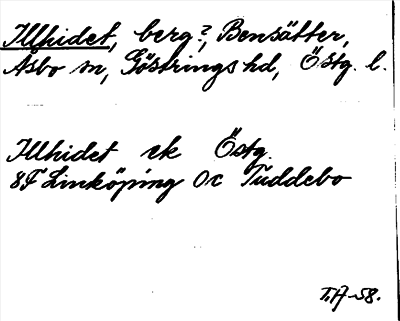 Illhidet, berg?, Bensätter,
Åsbo sn, Göstrings hd, Östg. l.
Illhidet ek Östg.
8F Linköping Oc Tuddebo
T.A-58.